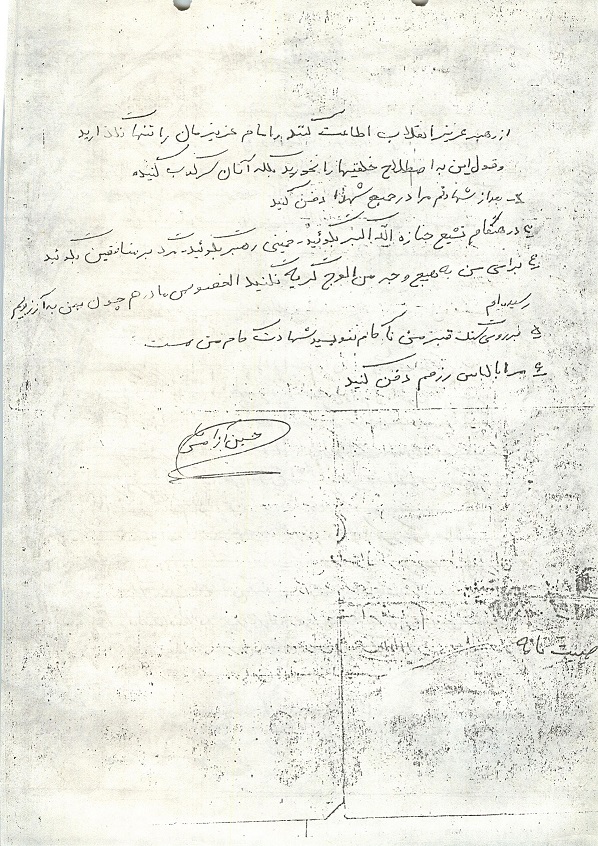 از رهبر عزیز انقلاب اطاعت کنید و امام عزیزمان را تنها نگذارید
و قول این به اصطلاح خلقیها را نخورید بلکه آنان سرکوب کنید
۲- بعد از شهادتم مرا در جمع شهدا دفن کنید
۳ در هنگام تشیع جنازه الله اکبر بگوئید - خمینی رهبر بگوئید - مرگ بر منافقین بگوئید
۴ برای من به هیچ وجه من الوج گریه نکنید الخصوص مادرم چون من به آرزویم
رسیده‌ام
۵ بر روی سنگ قبر من ناکام ننویسید شهادت کام من است
۶ مرا با لباس رزمم دفن کنید
حسین آرامش
وصیت نامه